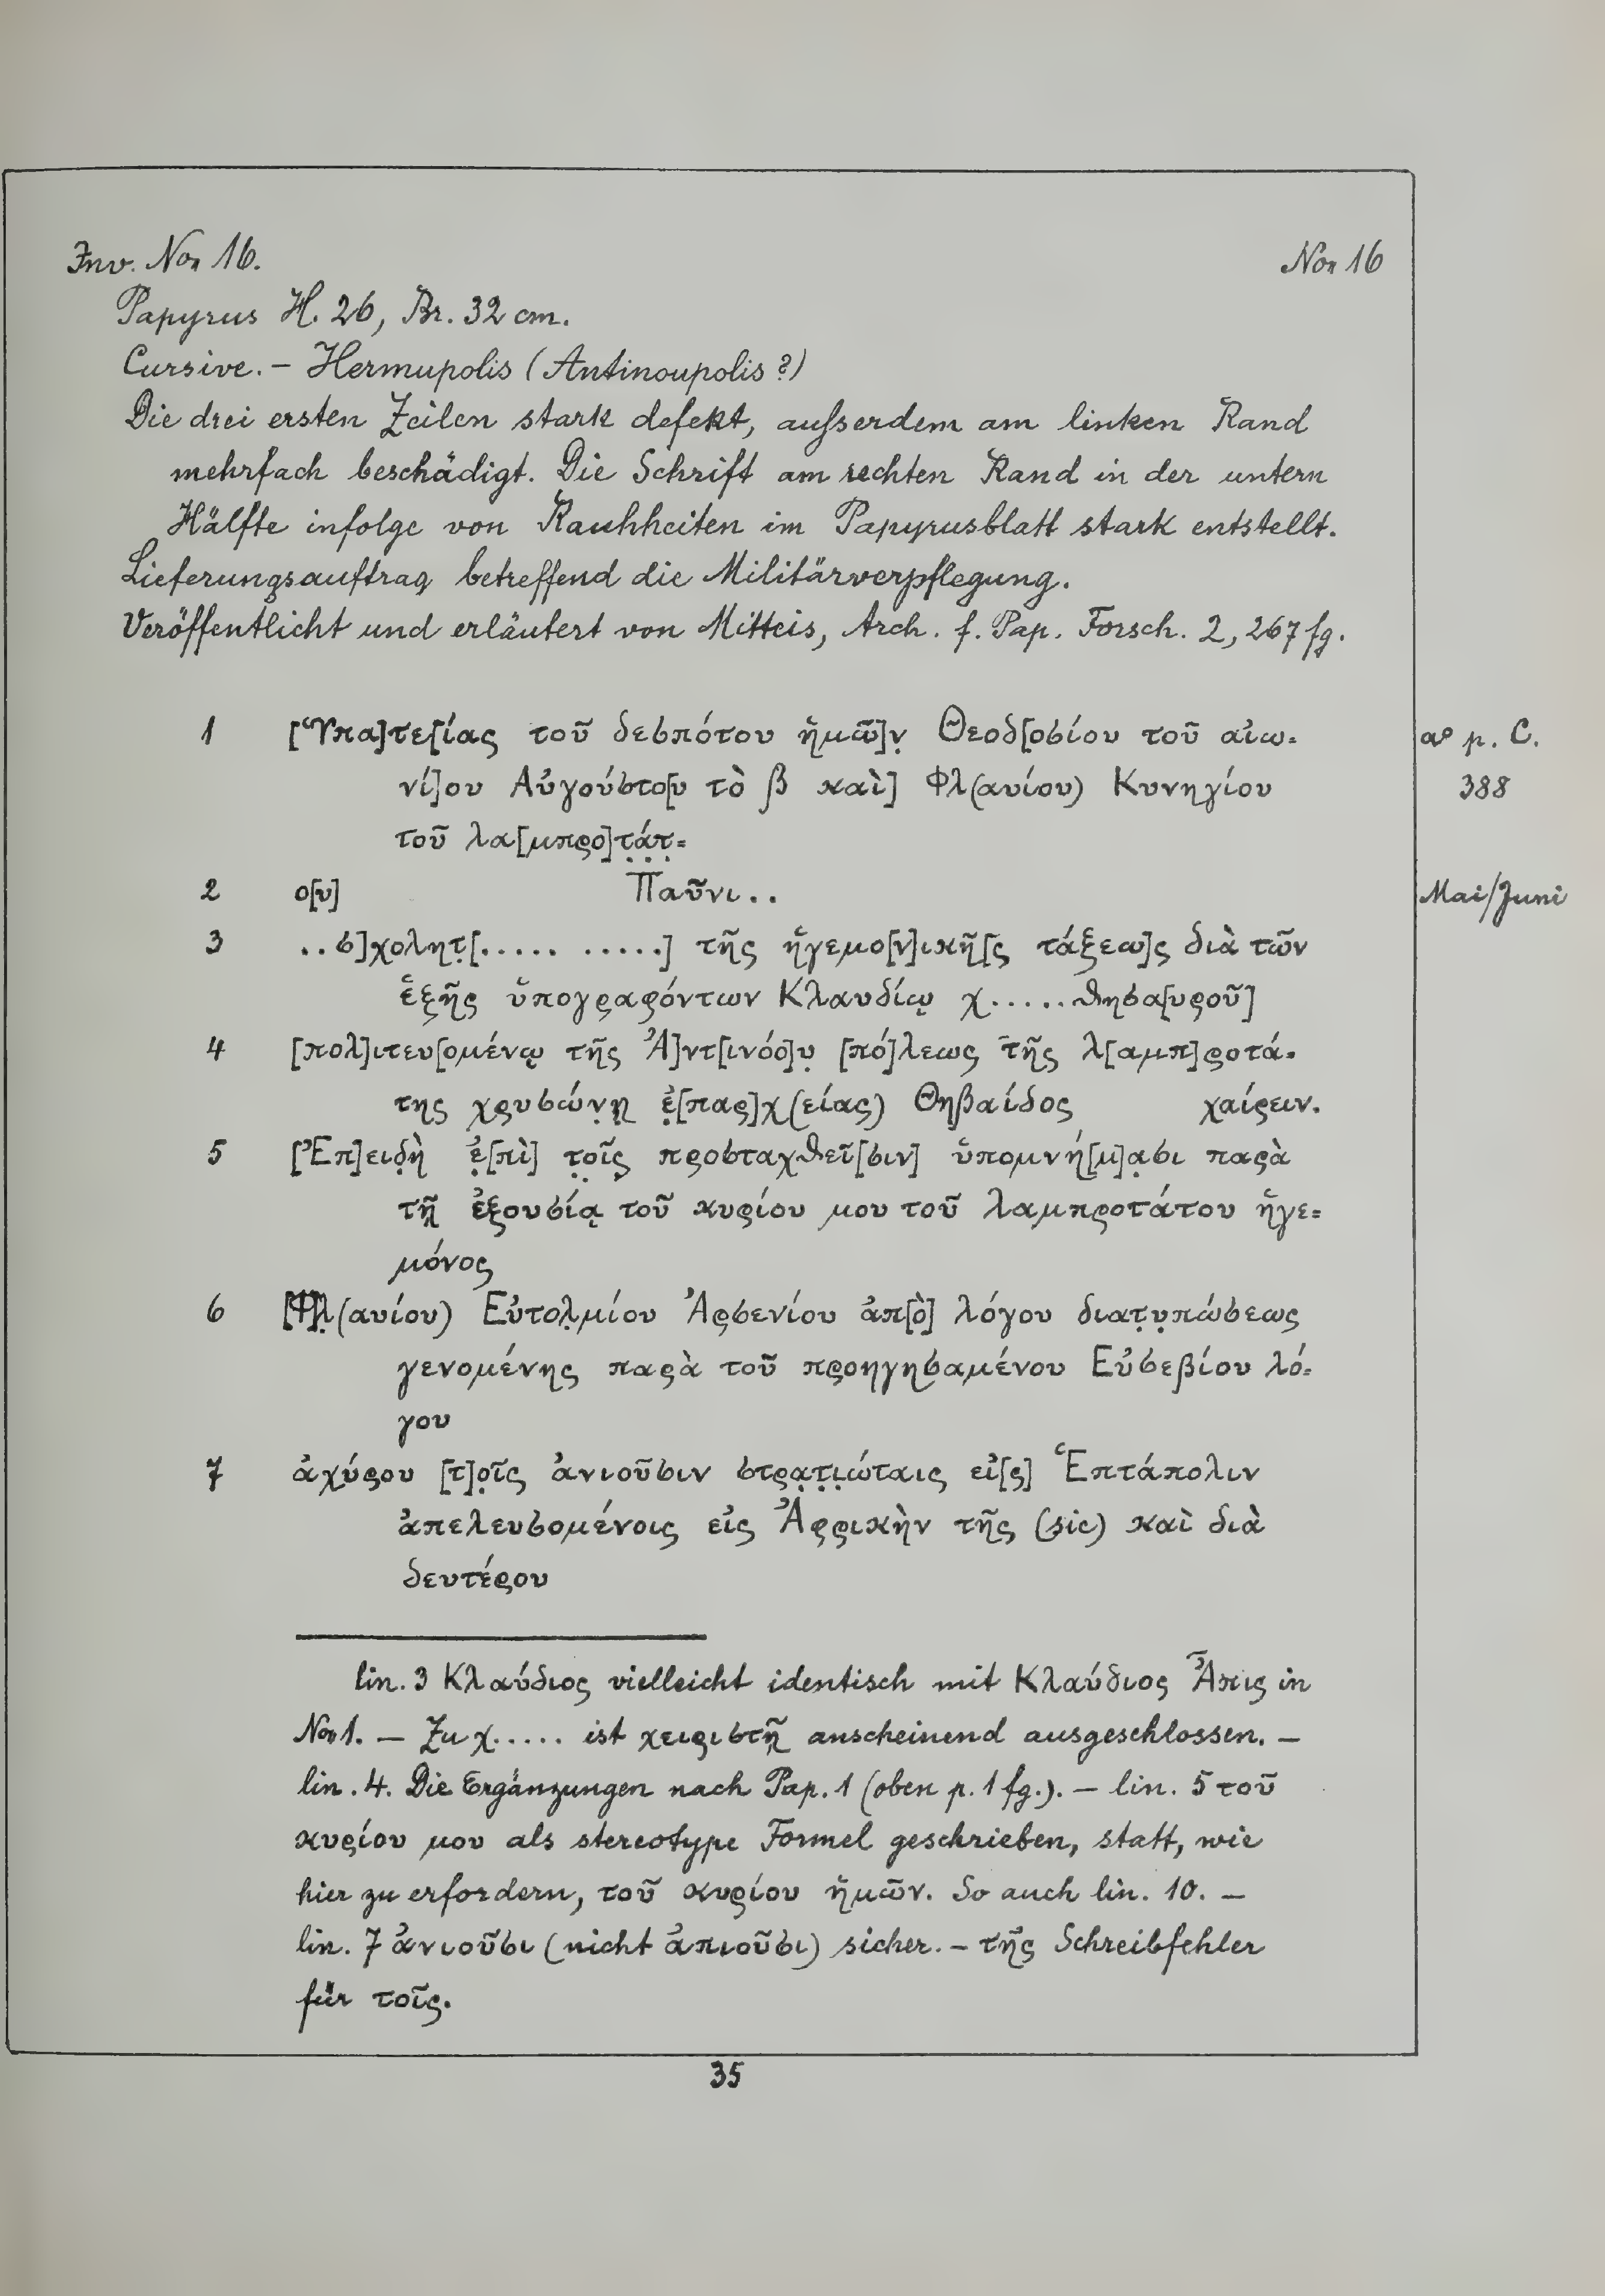 Inv. No. 16. No. 16
Papyrus H. 26, Br. 32 cm.
Cursive. – Hermupolis (Antinoupolis?)
Die drei ersten Zeilen stark defekt, aufserdem am linken Rand
mehrfach beschädigt. Die Schrift am rechten Rand in der untern
Hälfte infolge von Rauhheiten im Papyrusblatt stark entstellt.
Lieferungsauftrag betreffend die Militärverpflegung.
Veröffentlicht und erläutert von Mitteis, Arch. f. Pap. Forsch. 2, 267 fg.
1 [Ὑπα]τε[ίας τοῦ δεσπότου ἡμῶ]ν̣ Θεοδ[οσίου τοῦ αἰω= a° p. C.
νί]ου Αὐγούστο[υ τὸ β καὶ] Φλ(αυίου) Κυνηγίου 388
τοῦ λα[μπρο]τ̣ά̣τ̣=
2 ο[υ] Παῦνι.. Mai/Juni
3 ..σ]χολητ̣[..... .....] τῆς ἡγεμο[ν]ικῆ[ς τάξεω]ς διὰ τῶν
ἑξῆς ὑπογραφόντων Κλαυδίῳ χ.....θησα[υροῦ]
4 [πολ]ιτευ[ομένῳ τῆς Ἀ]ντ[ινόο]υ̣ [πό]λεως τῆς λ[αμπ]ροτά=
της χρυσώ̣ν̣ῃ̣ ἐ̣[παρ]χ(είας) Θηβαίδος χαίρειν.
5 [Ἐπ]ειδ̣ὴ ἐ̣[πὶ] τ̣ο̣ῖς̣ προσταχθεῖ[σιν] ὑπομνή[μ]α̣σι παρὰ
τῇ ἐξουσίᾳ τοῦ κυρίου μου τοῦ λαμπροτάτου ἡγε=
μόνος
6 [Φ]λ̣(αυίου) Εὐτολ̣μίου Ἀρσενίου ἀπ[ὸ] λόγου διατ̣υ̣πώσεως
γενομένης παρὰ τοῦ προηγησαμένου Εὐσεβίου λό=
γου
7 ἀχύρου [τ]ο̣ῖς ἀνιοῦσιν στρα̣τ̣ι̣ώταις εἰ[ς] Ἑπτάπολιν
ἀπελευσομένοις εἰς Ἀφρικὴν τῆς (sic) καὶ διὰ
δευτέρου
lin. 3 Κλαύδιος vielleicht identisch mit Κλαύδιος Ἆπις in
No. 1. – Zu χ..... ist χειριστῇ anscheinend ausgeschlossen. –
lin. 4. Die Ergänzungen nach Pap. 1 (oben p. 1 fg.). – lin. 5 τοῦ
κυρίου μου als stereotype Formel geschrieben, statt, wie
hier zu erfordern, τοῦ κυρίου ἡμῶν. So auch lin. 10. –
lin. 7 ἀνιοῦσι (nicht ἀπιοῦσι) sicher. – τῆς Schreibfehler
für τοῖς.
35